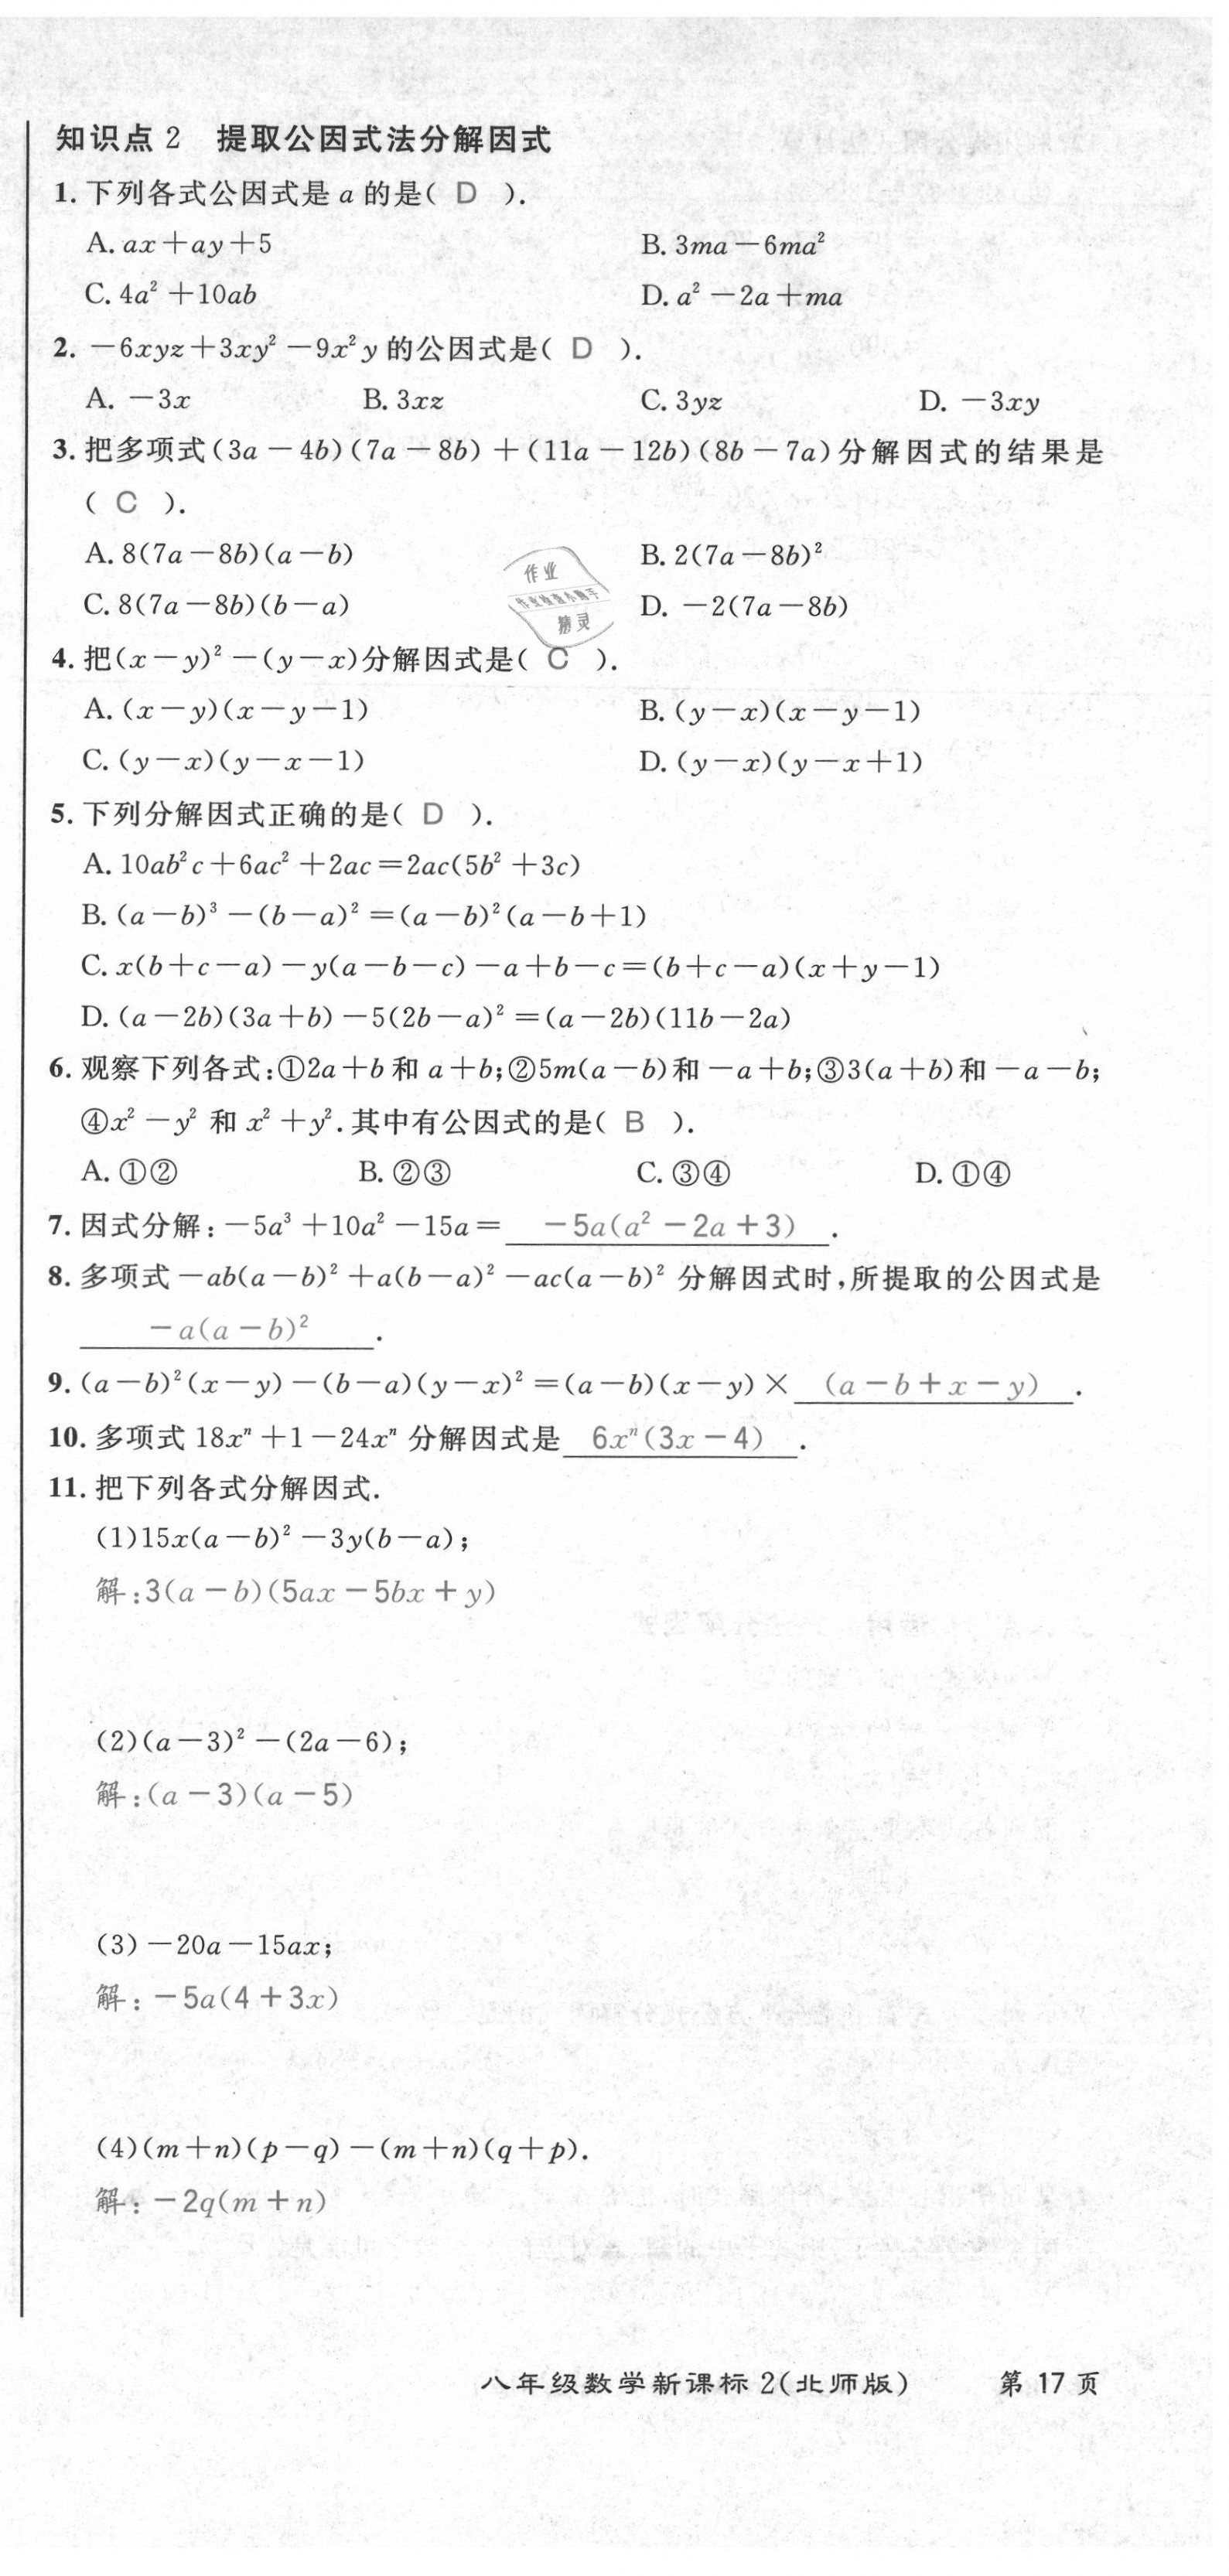 知识点 2 提取公因式法分解因式
1. 下列各式公因式是 a 的是( D ).
A. ax+ay+5 B. 3ma-6ma²
C. 4a²+10ab D. a²-2a+ma
2. -6xyz+3xy²-9x²y 的公因式是( D ).
A. -3x B. 3xz C. 3yz D. -3xy
3. 把多项式(3a-4b)(7a-8b)+(11a-12b)(8b-7a)分解因式的结果是
( C ).
A. 8(7a-8b)(a-b) B. 2(7a-8b)²
C. 8(7a-8b)(b-a) D. -2(7a-8b)
作业
精灵
4. 把(x-y)²-(y-x)分解因式是( C ).
A. (x-y)(x-y-1) B. (y-x)(x-y-1)
C. (y-x)(y-x-1) D. (y-x)(y-x+1)
5. 下列分解因式正确的是( D ).
A. 10ab²c+6ac²+2ac=2ac(5b²+3c)
B. (a-b)³-(b-a)²=(a-b)²(a-b+1)
C. x(b+c-a)-y(a-b-c)-a+b-c=(b+c-a)(x+y-1)
D. (a-2b)(3a+b)-5(2b-a)²=(a-2b)(11b-2a)
6. 观察下列各式:①2a+b 和 a+b;②5m(a-b)和-a+b;③3(a+b)和-a-b;
④x²-y² 和 x²+y².其中有公因式的是( B ).
A. ①② B. ②③ C. ③④ D. ①④
7. 因式分解:-5a³+10a²-15a= -5a(a²-2a+3) .
8. 多项式-ab(a-b)²+a(b-a)²-ac(a-b)² 分解因式时,所提取的公因式是
-a(a-b)² .
9. (a-b)²(x-y)-(b-a)(y-x)²=(a-b)(x-y)× (a-b+x-y) .
10. 多项式 18xⁿ+1-24xⁿ 分解因式是 6xⁿ(3x-4) .
11. 把下列各式分解因式.
(1)15x(a-b)²-3y(b-a);
解:3(a-b)(5ax-5bx+y)
(2)(a-3)²-(2a-6);
解:(a-3)(a-5)
(3)-20a-15ax;
解:-5a(4+3x)
(4)(m+n)(p-q)-(m+n)(q+p).
解:-2q(m+n)
八年级数学新课标 2(北师版) 第 17 页